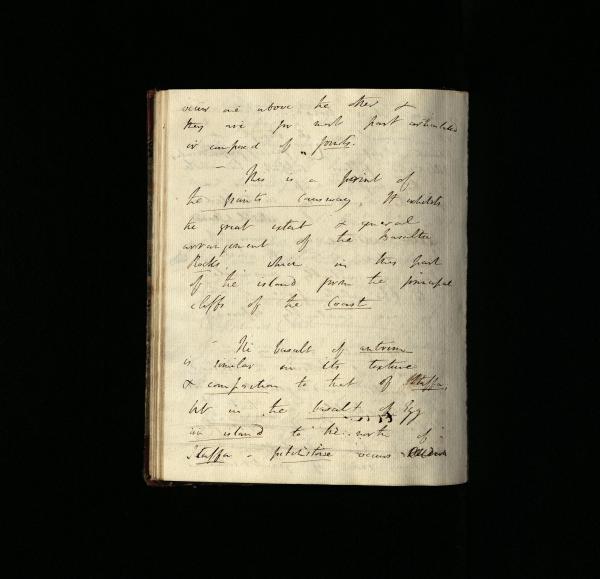 view one above the other &
they are for most part articulated
or composed of joints.
– This is a print of
the giants Causeway. It exhibits
the great extent & general
arrangement of the basaltic
Rocks which in this part
of the island form the principal
cliffs of the Coast
– The basalt of antrim
is similar in its texture
& composition to that of Staffa,
but in the basalt of Egg
an island to the north of
Staffa – pitchstone occurs